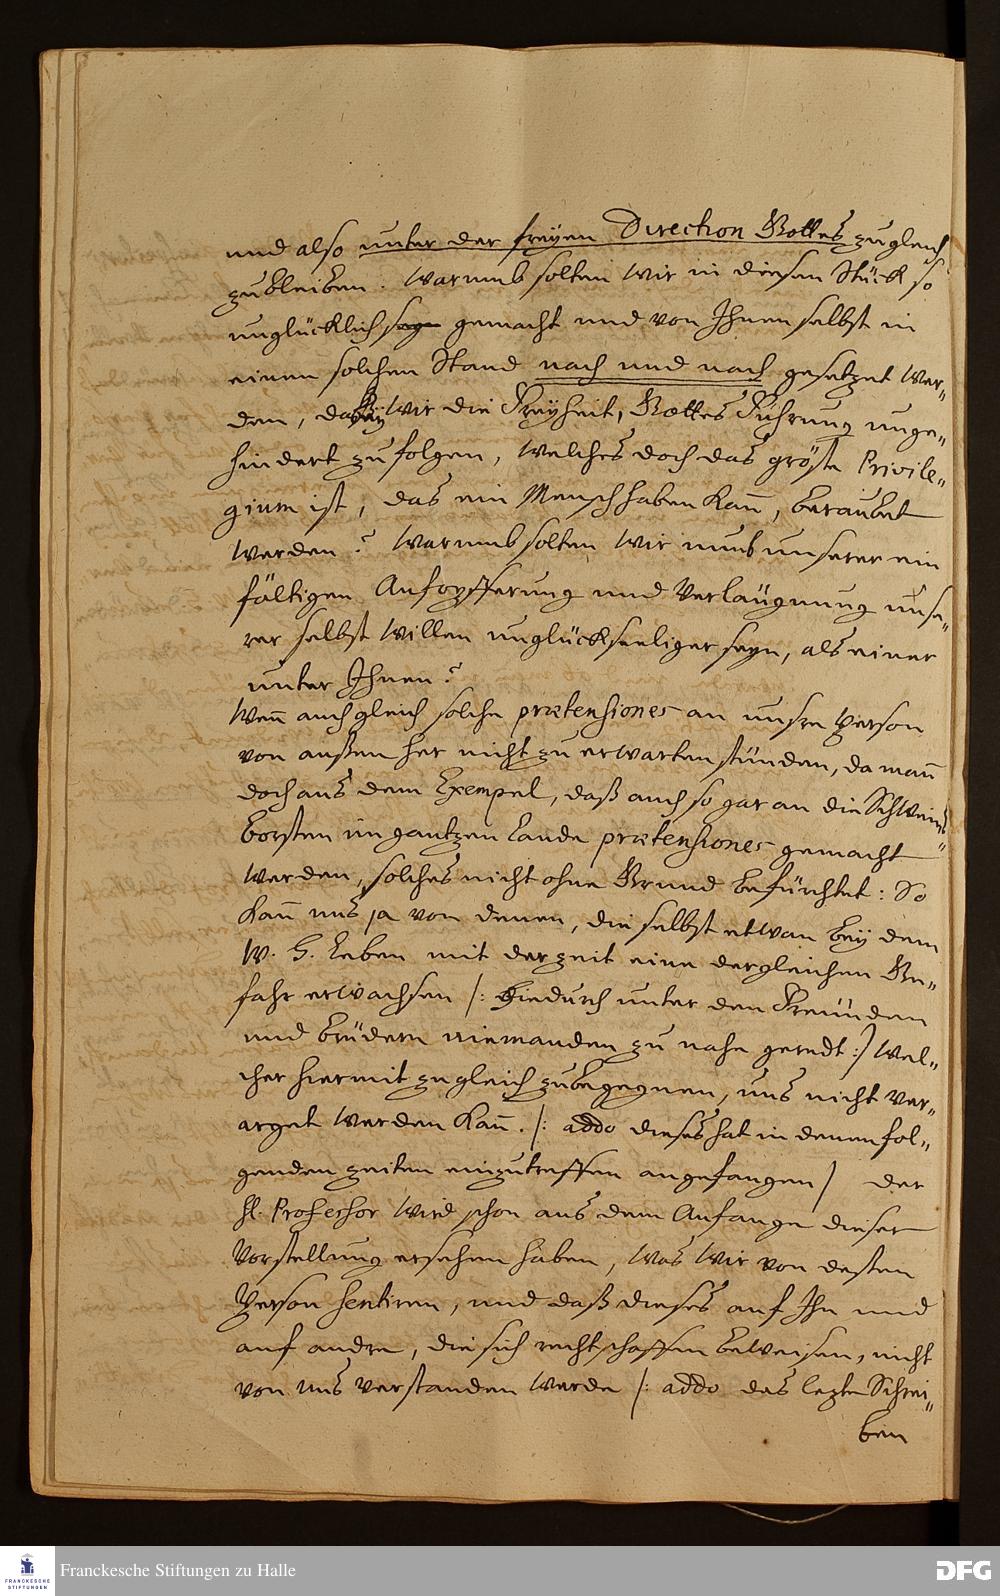 und also unter der freyen Direction Gottes zugleich
zubleiben. Warumb solten wir in diesen Stück so
unglücklich seyn gemacht und von Ihnen selbst in
einen solchen Stand nach und nach gesetzet wer„
den, daß wir die Freyheit, Gottes Führung unge„
hindert zufolgen, welches doch das gröste Privile„
gium ist, das ein Mensch haben kan̄, beraubet
werden? Warumb solten wir umb unserer ein
fältigen Aufopfferung und Verläugnung unse„
rer selbst willen unglückseeliger seyn, als einer
unter Ihnen?
Wen̄ auch gleich solche prætensiones an unsre Person
von außen her nicht zu erwarten stünden, da man̄
doch aus dem Exempel, daß auch so gar an die Schweins„
borsten im gantzen Lande prætensiones gemacht
werden, solches nicht ohne Grund befürchtet: So
kan̄ uns ja von denen, die selbst etwan bey dem
W. H. leben mit der zeit eine dergleichen Ge„
fahr erwachsen /: hiedurch unter den Freunden
und Brüdern niemanden zu nahe geredt :/ wel„
cher hiermit zugleich zubegegnen, uns nicht ver„
arget werden kan̄. /: addo dieses hat in denen fol„
genden zeiten einzutreffen angefangen / der
H. Professor wird schon aus dem Anfange dieser
Vorstellung ersehen haben, was wir von desten
Person sentiren, und daß dieses auf Ihn und
auf andre, die sich rechtschaffen beweisen, nicht
von uns verstanden werde /: addo das lezte Schrei„
ben
Franckesche Stiftungen zu Halle
FRANCKESCHE
STIFTUNGEN
DFG